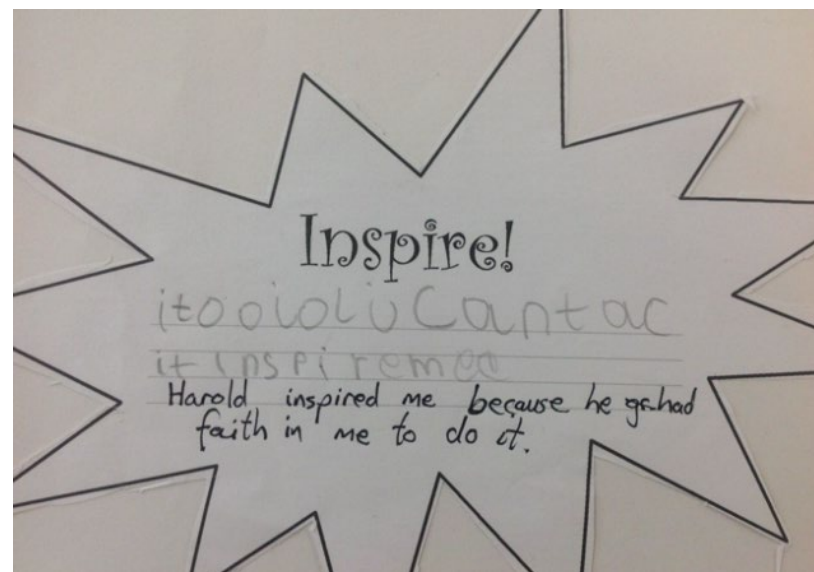 Inspire!
itooioliucantac
it inspiremee
Harold inspired me because he had
faith in me to do it.